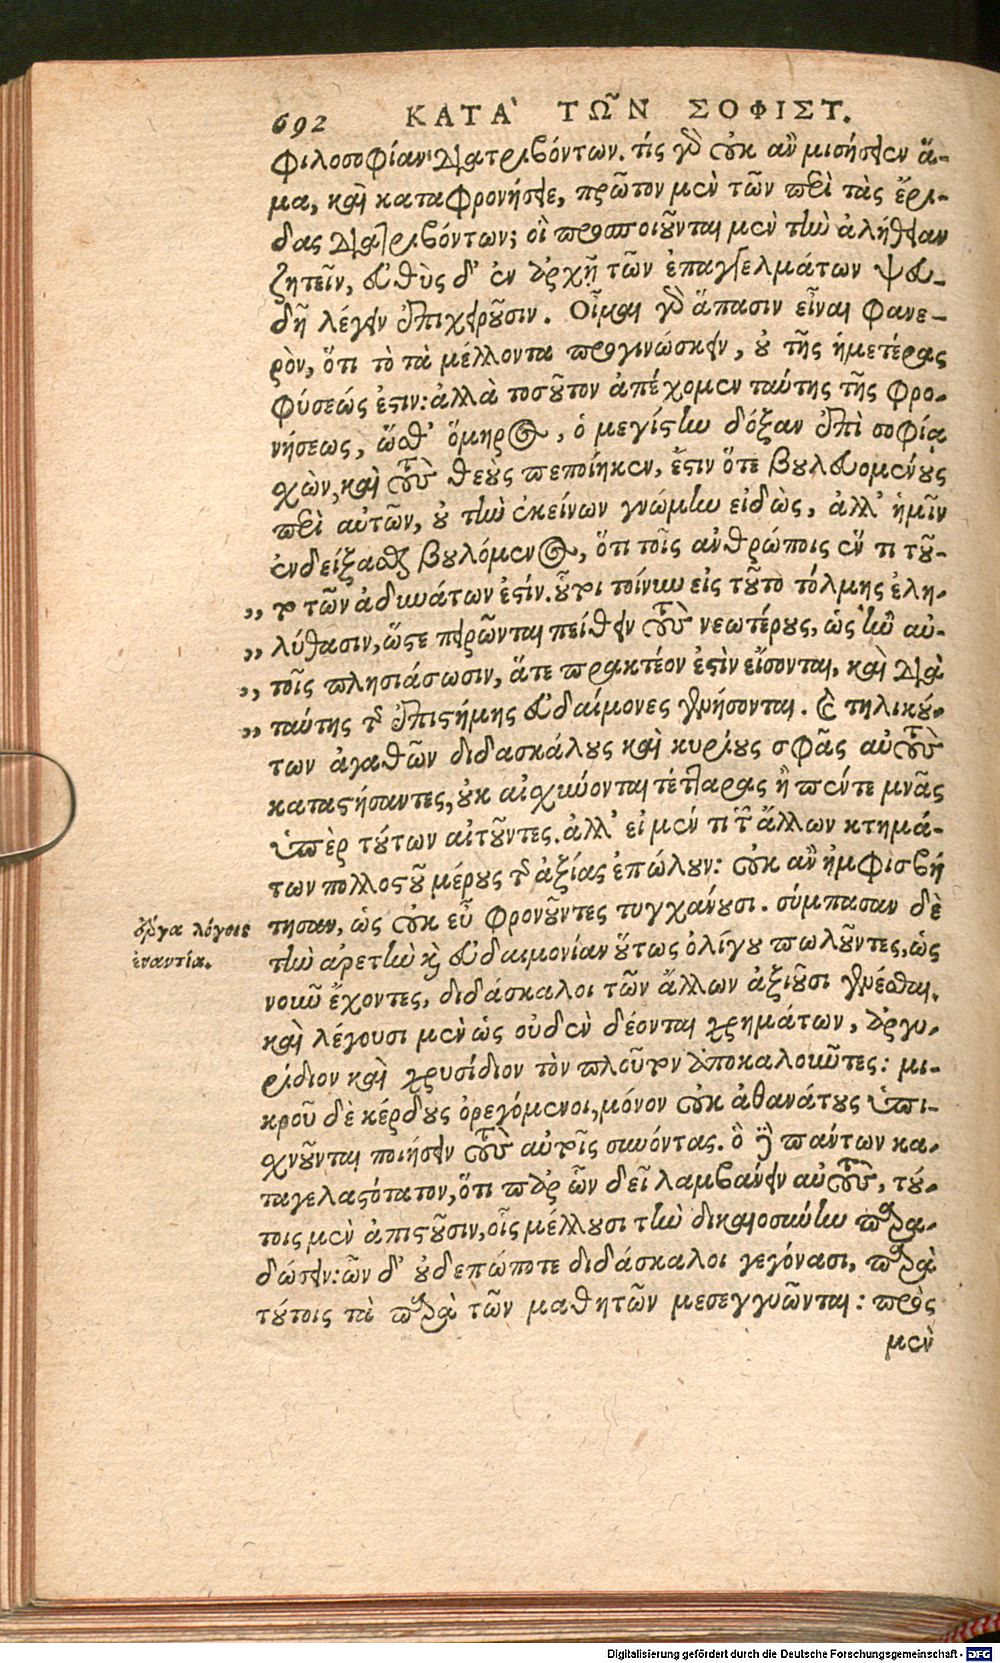 692 ΚΑΤΑ` ΤΩ͂Ν ΣΟΦΙΣΤ.
φιλοσοφίαν διατριβόντων. τίς γὸ οὐκ ἂν μισήσειεν ἅ-
μα, καὶ καταφρονήσειε, πρῶτον μὲν τῶν περὶ τὰς ἔρι-
δας διατριβόντων; οἳ προσποιοῦνται μὲν τὴν ἀλήθειαν
ζητεῖν, εὐθὺς δ' ἐν ἀρχῇ τῶν ἐπαγγελμάτων ψευ-
δῆ λέγειν ἐπιχειροῦσιν. Οἶμαι γὸ ἅπασιν εἶναι φανε-
ρὸν, ὅτι τὸ τὰ μέλλοντα προγινώσκειν, οὐ τῆς ἡμετέρας
φύσεώς ἐστιν: ἀλλὰ τοσοῦτον ἀπέχομεν ταύτης τῆς φρο-
νήσεως, ὥσθ' ὅμηρος, ὁ μεγίστην δόξαν ἐπὶ σοφίᾳ
χὼν, καὶ τοὺς θεοὺς πεποίηκεν, ἔστιν ὅτε βουλευομένους
περὶ αὐτῶν, οὐ τὴν ἐκείνων γνώμην εἰδὼς, ἀλλ' ἡμῖν
ἐνδείξασθαι βουλόμενος, ὅτι τοῖς ἀνθρώποις ἕν τι τοῦ-
„ το τῶν ἀδυνάτων ἐστίν. οὗτοι τοίνυν εἰς τοῦτο τόλμης ἐλη-
„ λύθασιν, ὥστε πειρῶνται πείθειν τοὺς νεωτέρους, ὡς ἢν αὐ-
„ τοῖς πλησιάσωσιν, ἅτε πρακτέον ἐστὶν εἴσονται, καὶ διὰ
„ ταύτης τῆς ἐπιστήμης εὐδαίμονες γενήσονται. καὶ τηλικού-
των ἀγαθῶν διδασκάλους καὶ κυρίους σφᾶς αὐτοὺς
καταστήσαντες, οὐκ αἰσχύνονται τέτταρας ἢ πέντε μνᾶς
ὑπὲρ τούτων αἰτοῦντες. ἀλλ' εἰ μέν τι τῶν ἄλλων κτημά-
των πολλοστοῦ μέρους τῆς ἀξίας ἐπώλουν: οὐκ ἂν ἠμφισβή
τησαν, ὡς οὐκ εὖ φρονοῦντες τυγχάνουσι. σύμπασαν δὲ
τὴν ἀρετὴν καὶ εὐδαιμονίαν οὕτως ὀλίγου πωλοῦντες, ὡς
νοῦν ἔχοντες, διδάσκαλοι τῶν ἄλλων ἀξιοῦσι γενέσθαι.
καὶ λέγουσι μὲν ὡς οὐδὲν δέονται χρημάτων, ἀργυ-
ρίδιον καὶ χρυσίδιον τὸν πλοῦτον ἀποκαλοῦντες: μι-
κροῦ δὲ κέρδους ὀρεγόμενοι, μόνον οὐκ ἀθανάτους ὑπι-
χνοῦνται ποιήσειν τοὺς αὐτοῖς συνόντας. ὃ δὲ πάντων κα-
ταγελαστότατον, ὅτι παρ' ὧν δεῖ λαμβάνειν αὐτοὺς, τού-
τοις μὲν ἀπιστοῦσιν, οἷς μέλλουσι τὴν δικαιοσύνην παρα-
δώσειν: ὧν δ' οὐδεπώποτε διδάσκαλοι γεγόνασι, παρὰ
τούτοις τὰ παρὰ τῶν μαθητῶν μεσεγγυῶνται: πρὸς
μὲν
ἔργα λόγοις
ἐναντία.
Digitalisierung gefördert durch die Deutsche Forschungsgemeinschaft - DFG